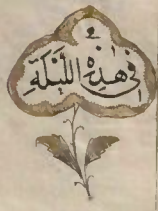 في هٰذِهِ اللَّيْلَةِ